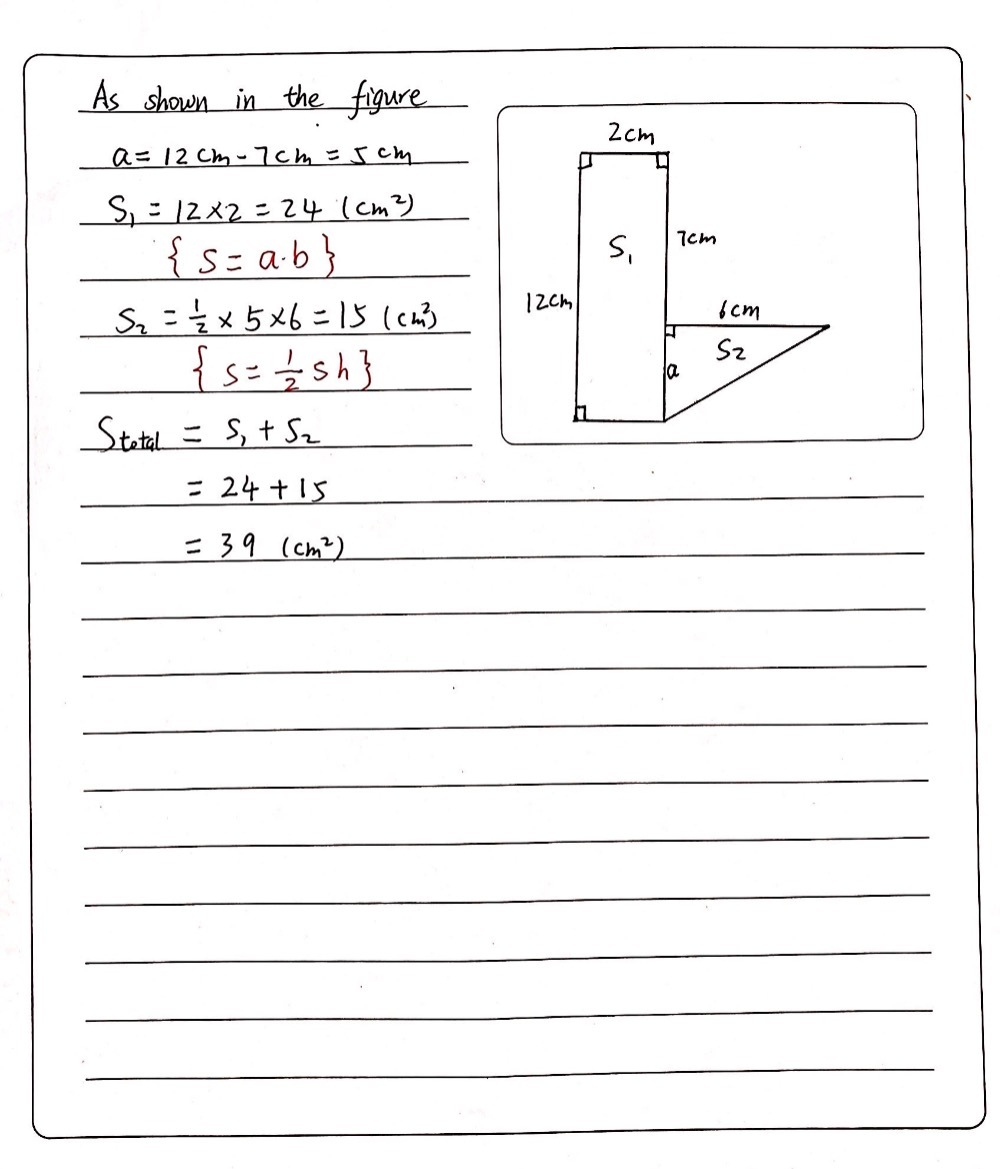 As shown in the figure
a = 12cm - 7cm = 5cm
S₁ = 12×2 = 24 (cm²)
{ S = a·b }
S₂ = ½ × 5×6 = 15 (cm²)
{ s = ½ s h }
S total = S₁ + S₂
= 24 + 15
= 39 (cm²)
2cm
S₁
7cm
12cm
6cm
S₂
a